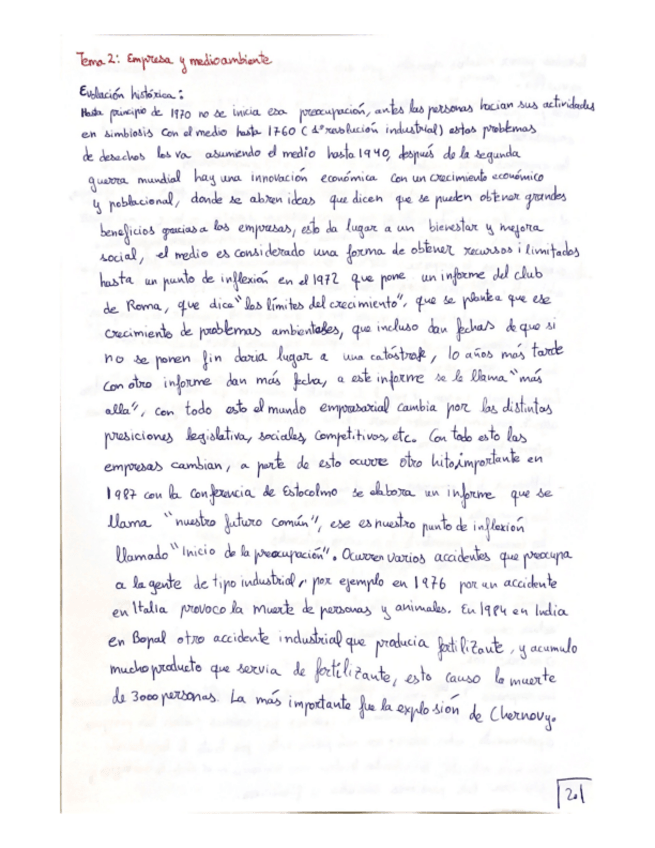 Tema 2: Empresa y medioambiente
Evolución histórica:
Hasta principio de 1970 no se inicia esa preocupación, antes las personas hacian sus actividades
en simbiosis con el medio hasta 1760 (1ª revolución industrial) estos problemas
de desechos los va asumiendo el medio hasta 1940, después de la segunda
guerra mundial hay una innovación económica con un crecimiento económico
y poblacional, donde se abren ideas que dicen que se pueden obtener grandes
beneficios gracias a las empresas, esto da lugar a un bienestar y mejora
social, el medio es considerado una forma de obtener recursos ilimitados
hasta un punto de inflexión en el 1972 que pone un informe del club
de Roma, que dice "los límites del crecimiento", que se plantea que ese
crecimiento de problemas ambientales, que incluso dan fechas de que si
no se ponen fin daria lugar a una catástrofe, 10 años más tarde
con otro informe dan más fecha, a este informe se le llama "más
alla", con todo esto el mundo empresarial cambia por las distintas
presiciones legislativa, sociales, competitivos, etc. Con todo esto las
empresas cambian, a parte de esto ocurre otro hito importante en
1987 con la conferencia de Estocolmo se elabora un informe que se
llama "nuestro futuro común", ese es nuestro punto de inflexión
llamado "Inicio de la preocupación". Ocurren varios accidentes que preocupa
a la gente de tipo industrial, por ejemplo en 1976 por un accidente
en Italia provoco la muerte de personas y animales. En 1984 en India
en Bopal otro accidente industrial que producia fertilizante, y acumulo
mucho producto que servia de fertilizante, esto causo la muerte
de 3000 personas. La más importante fue la explosión de Chernovy.
20